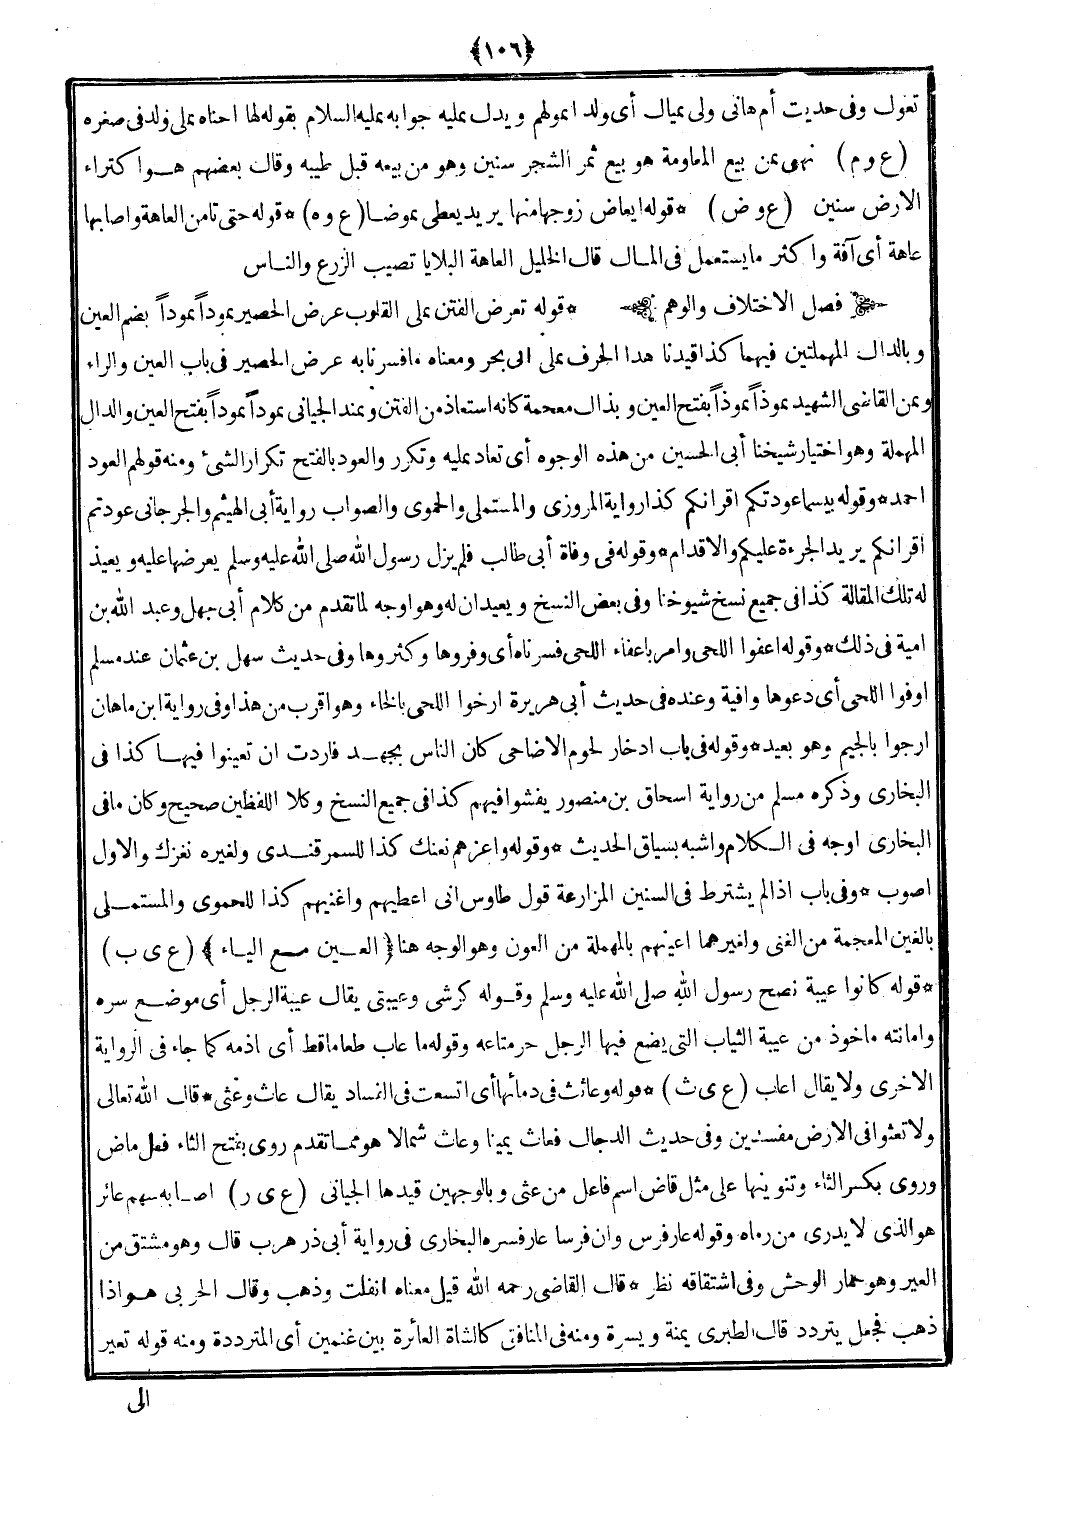 ﴿١٠٦﴾
تعول وفى حديث أم هانى ولى عيال أى ولد اعولهم ويدل عليه جوابه عليه السلام بقوله لها احناه على ولد فى صغره
(ع و م) نهى عن بيع المعاومة هو بيع ثمر الشجر سنين وهو من بيعه قبل طيبه وقال بعضهم هو اكتراء
الارض سنين (ع و ض) * قوله ايعاض زوجها منها يريد يعطى عوضا (ع و ه) * قوله حتى تامن العاهة واصابها
عاهة أى آفة واكثر ما يستعمل فى المال قال الخليل العاهة البلايا تصيب الزرع والناس
فصل الاختلاف والوهم * قوله تعرض الفتن على القلوب عرض الحصير عوداً عوداً بضم العين
وبالدال المهملتين فيهما كذا قيدنا هذا الحرف على ابى بحر ومعناه مافسرنا به عرض الحصير فى باب العين والراء
وعن القاضى الشهيد عوذاً عوذاً بفتح العين وبذال معجمة كانه استعاذ من الفتن وعند الجيانى عوداً عوداً بفتح العين والدال
المهملة وهو اختيار شيخنا أبى الحسين من هذه الوجوه أى تعاد عليه وتكرر والعود بالفتح تكرار الشئ ومنه قولهم العود
احمد * وقوله بيسما عودتكم اقرانكم كذا رواية المروزى والمستملى والحموى والصواب رواية أبى الهيثم والجرجانى عودتم
اقرانكم يريد الجرءة عليكم والاقدام * وقوله فى وفاة أبى طالب فلم يزل رسول الله صلى الله عليه وسلم يعرضها عليه ويعيذ
له تلك المقالة كذا فى جميع نسخ شيوخنا وفى بعض النسخ ويعيدان له وهو اوجه لما تقدم من كلام أبى جهل وعبد الله بن
امية فى ذلك * وقوله اعفوا اللحى وامر باعفاء اللحى فسرناه أى وفروها وكثروها وفى حديث سهل بن عثمان عند مسلم
اوفوا اللحى أى دعوها وافية وعنده فى حديث أبى هريرة ارخوا اللحى بالخاء وهو اقرب من هذا وفى رواية ابن ماهان
ارجوا بالجيم وهو بعيد * وقوله فى باب ادخار لحوم الاضاحى كان الناس بجهد فاردت ان تعينوا فيها كذا فى
البخارى وذكره مسلم من رواية اسحاق بن منصور يفشوا فيهم كذا فى جميع النسخ وكلا اللفظين صحيح وكان مافى
البخارى اوجه فى الكلام واشبه بسياق الحديث * وقوله واعزهم نعنك كذا للسمرقندى ولغيره نغزك والاول
اصوب * وفى باب اذا لم يشترط فى السنين المزارعة قول طاوس انى اعطيهم واغنيهم كذا للحموى والمستملى
بالغين المعجمة من الغنى ولغيرهما اعينهم بالمهملة من العون وهو الوجه هنا ﴿العين مع الياء﴾ (ع ى ب)
* قوله كانوا عيبة نصح رسول الله صلى الله عليه وسلم وقوله كرشى وعيبتى يقال عيبة الرجل أى موضع سره
وامانته ماخوذ من عيبة الثياب التى يضع فيها الرجل حر متاعه وقوله ما عاب طعاما قط أى اذمه كما جاء فى الرواية
الاخرى ولا يقال اعاب (ع ى ث) * قوله وعاثت فى دمائها أى اتسعت فى الفساد يقال عاث وعثى * قال الله تعالى
ولا تعثوا فى الارض مفسدين وفى حديث الدجال فعاث يمينا وعاث شمالا هو مما تقدم روى بفتح الثاء فعل ماض
وروى بكسر الثاء وتنوينها على مثل قاض اسم فاعل من عثى وبالوجهين قيدها الجيانى (ع ى ر) اصابه سهم عائر
هو الذى لا يدرى من رماه وقوله عار فرس وان فرسا عار فسره البخارى فى رواية أبى ذر هرب قال وهو مشتق من
العير وهو حمار الوحش وفى اشتقاقه نظر * قال القاضى رحمه الله قيل معناه انفلت وذهب وقال الحربى هو اذا
ذهب فجعل يتردد قال الطبرى يمنة ويسرة ومنه فى المنافق كالشاة العائرة بين غنمين أى المترددة ومنه قوله تعير
الى